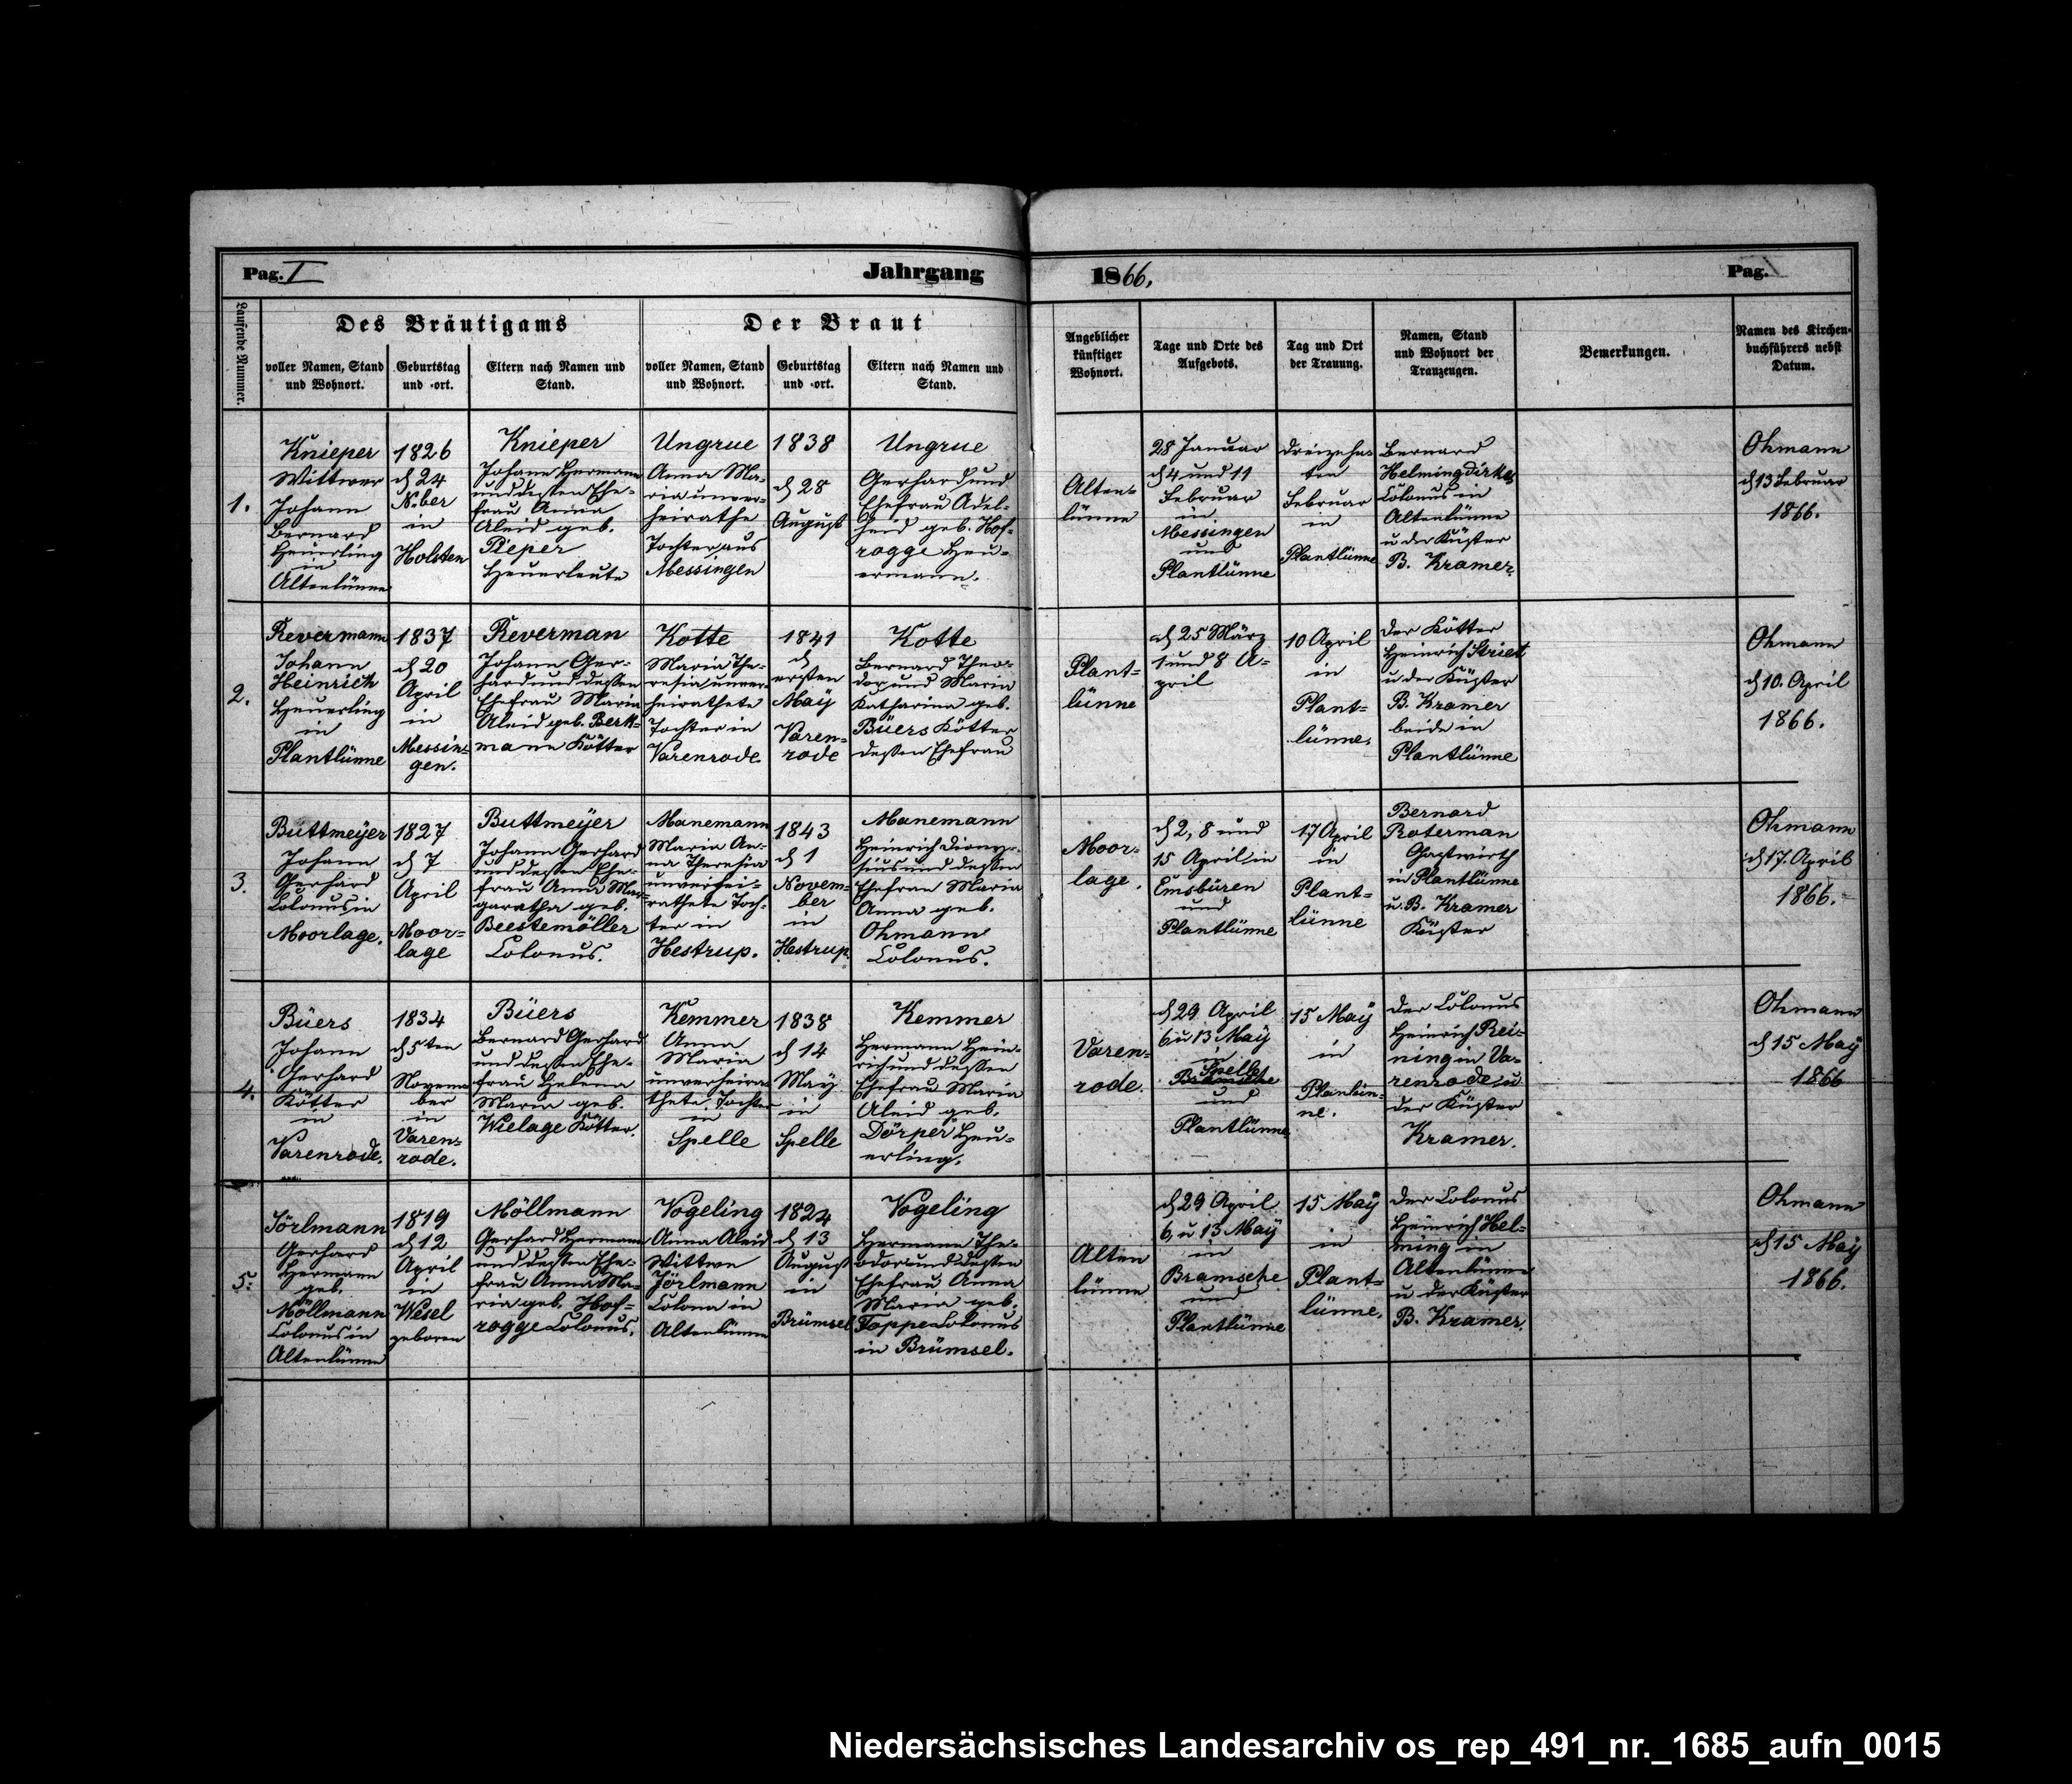 Pag. I
Jahrgang
1866.
Pag.
Laufende Nummer.
Des Bräutigams
voller Namen, Stand
und Wohnort.
Geburtstag
und -ort.
Eltern nach Namen und
Stand.
Der Braut
voller Namen, Stand
und Wohnort.
Geburtstag
und -ort.
Eltern nach Namen und
Stand.
Angeblicher
künftiger
Wohnort.
Tage und Orte des
Aufgebots.
Tag und Ort
der Trauung.
Namen, Stand
und Wohnort der
Trauzeugen.
Bemerkungen.
Namen des Kirchen-
buchführers nebst
Datum.
1.
Knieper
Wittwer
Johann
Bernard
Heuerling
in
Altenlünne
1826
d 24
N.ber
in
Holsten
Knieper
Johann Hermann
und dessen Ehe-
frau Anna
Aleid geb.
Pieper
Heuerleute
Ungrue
Anna Ma-
ria unver-
heirathe
Tochter aus
Messingen
1838
d 28
August
Ungrue
Gerhard und
Ehefrau Adel-
heid geb. Hof-
rogge Heu-
ermann.
Alten-
lünne
28 Januar
d 4 und 11
Februar
in
Messingen
und
Plantlünne
dreizehn-
ten
Februar
in
Plantlünne
Bernard
Helmingdirkes
Colonus in
Altenlünne
u der Küster
B. Kramer.
Ohmann
d 13 Februar
1866.
2.
Revermann
Johann
Heinrich
Heuerling
in
Plantlünne
1837
d 20
April
in
Messin-
gen.
Reverman
Johann Ger-
hard und dessen
Ehefrau Maria
Aleid geb. Berk-
mann Kötter
Kotte
Maria The-
resia unver-
heirathete
Tochter in
Varenrode.
1841
d
ersten
May
Varen-
rode
Kotte
Bernard Theo-
dor und Maria
Katharina geb.
Büers Kötter
dessen Ehefrau
Plant-
lünne
d 25 März
1 und 8 A-
pril
10 April
in
Plant-
lünne.
der Kötter
Heinrich Striet
u der Küster
B. Kramer
beide in
Plantlünne
Ohmann
d 10. April
1866.
3.
Buttmeyer
Johann
Gerhard
Colonus in
Moorlage.
1827
d 7
April
Moor-
lage
Buttmeyer
Johann Gerhard
und dessen Ehe-
frau Anna Mar-
garatha geb.
Beestemöller
Colonus.
Manemann
Maria An-
na Theresia
unverhei-
rathete Toch-
ter in
Hestrup.
1843
d 1
Novem-
ber
in
Hestrup.
Manemann
Heinrich Diony-
sius und dessen
Ehefrau Maria
Anna geb.
Ohmann
Colonus.
Moor-
lage.
d 2, 8 und
15 April in
Emsbüren
und
Plantlünne
17 April
in
Plant-
lünne
Bernard
Roterman
Gastwirth
in Plantlünne
u. B. Kramer
Küster
Ohmann
d 17. April
1866.
4.
Büers
Johann
Gerhard
Kötter
in
Varenrode.
1834
d 5ten
Novem
ber
in
Varen-
rode.
Büers
Bernard Gerhard
und dessen Ehe-
frau Helena
Maria geb.
Wielage Kötter.
Kemmer
Anna
Maria
unverheira-
thete Tochter
in
Spelle
1838
d 14
May
in
Spelle
Kemmer
Hermann Hein-
rich und dessen
Ehefrau Maria
Aleid geb.
Dörper Heu-
erling.
Varen-
rode.
d 29 April
6 u 13 May
in
Spelle
Bramsche
und
Plantlünne
15 May
in
Planlün-
ne.
der Colonus
Heinrich Rei-
ning in Va-
renrode u
der Küster
Kramer.
Ohmann
d 15 May
1866
5.
Jörlmann
Gerhard
Hermann
geb.
Möllmann
Colonus in
Altenlünne
1819
d 12
April
in
Wesel
geboren
Möllmann
Gerhard Hermann
und dessen Ehe-
frau Anna Ma-
ria geb. Hof-
rogge Colonus.
Vogeling
Anna Aleid
Wittwe
Jörlmann
Colona in
Altenlünne
1824
d 13
August
in
Brümsel
Vogeling
Hermann The-
odor und dessen
Ehefrau Anna
Maria geb.
Toppe Colonus
in Brümsel.
Alten
lünne
d 29 April
6 u 13 May
in
Bramsche
und
Plantlünne
15 May
in
Plant-
lünne.
der Colonus
Heinrich Hel-
ming in
Altenlünne
u der Küster
B. Kramer.
Ohmann
d 15 May
1866.
Niedersächsisches Landesarchiv os_rep_491_nr._1685_aufn_0015